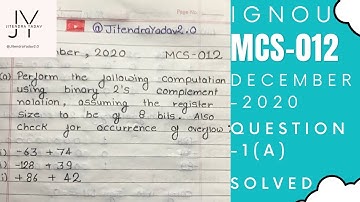 JITENDRA YADAV
@JitendraYadav2.0
Page No.
@JitendraYadav2.0
ber, 2020 MCS-012
(a) Perform the following computation
using binary 2's complement
notation, assuming the register
size to be of 8 bits. Also
check for occurrence of overflow
-63 + 74
-128 + 39
+86 + 42
IGNOU
MCS-012
DECEMBER
-2020
QUESTION
-1(A)
SOLVED